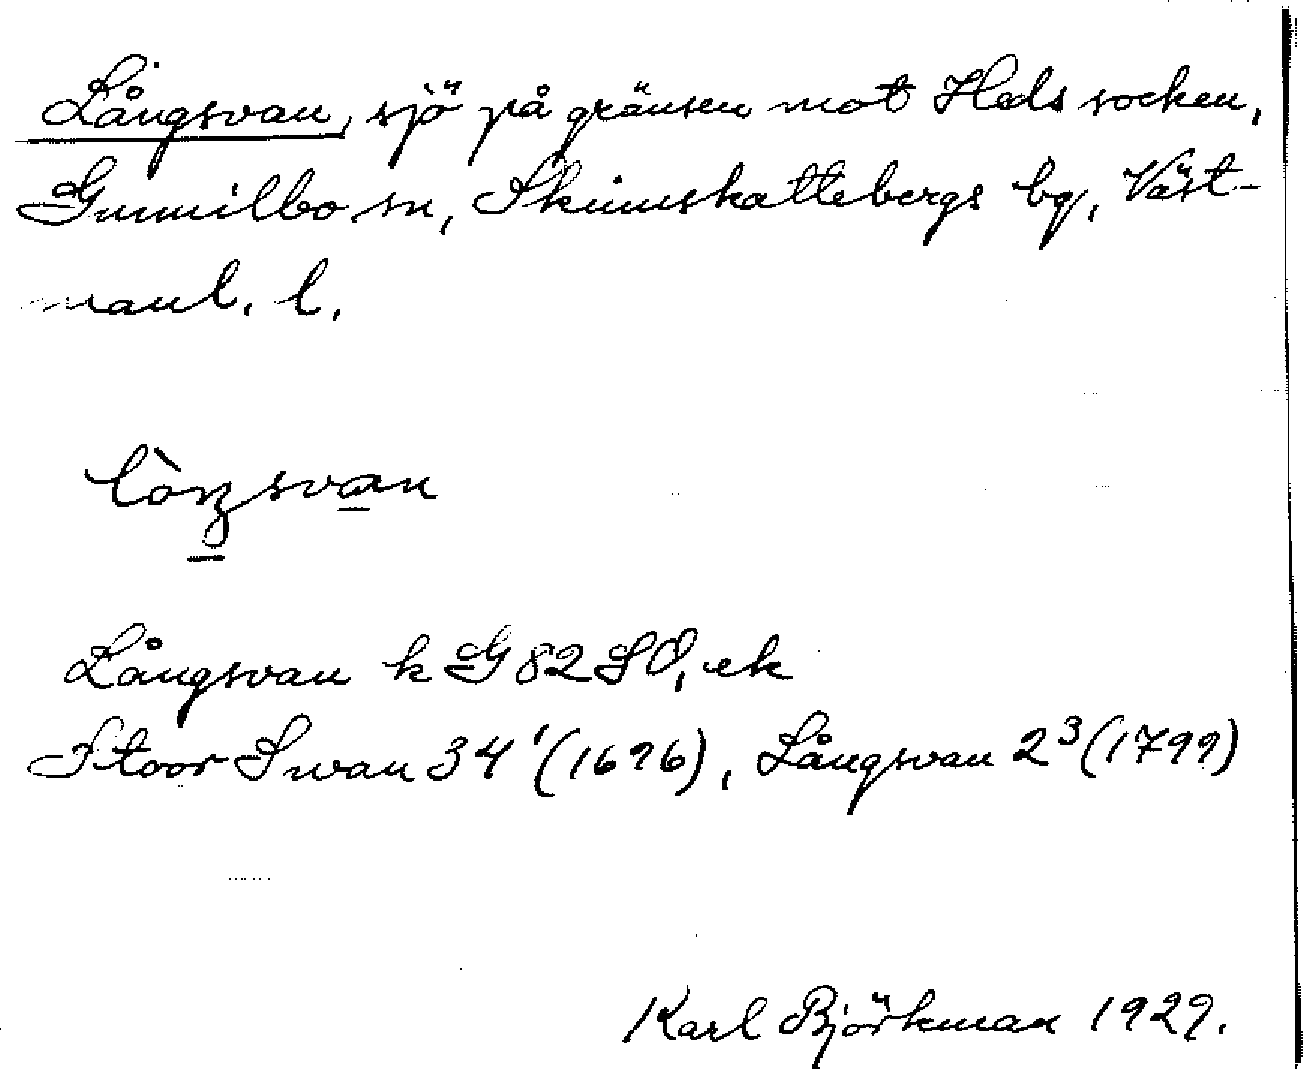 Långsvan, sjö på gränsen mot Heds socken,
Gunnilbo sn, Skinnskattebergs bg, Väst-
manl. l.
Långsvan k G 82 SO, ek
Stoor Swan 34¹ (1696), Långsvan 2³ (1799)
Karl Björkman 1929.